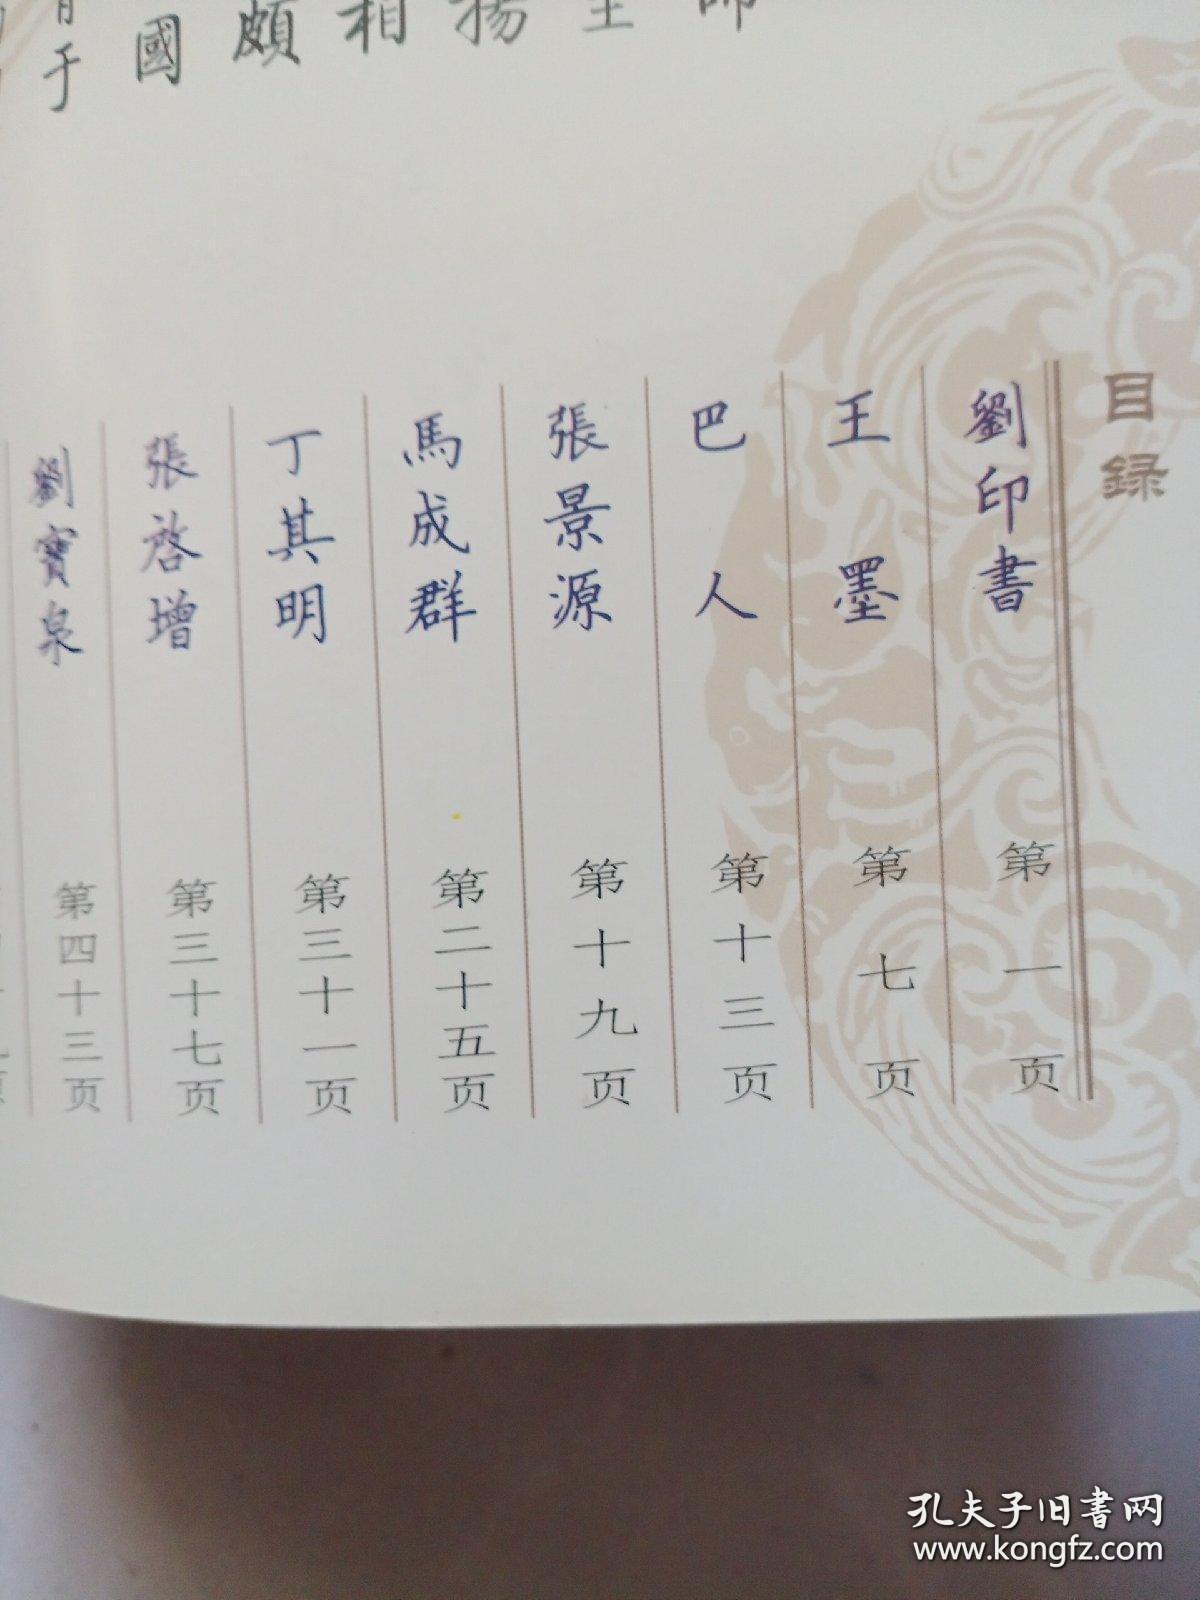 目录
劉印書 第一页
王墨 第七页
巴人 第十三页
張景源 第十九页
馬成群 第二十五页
丁其明 第三十一页
張啓增 第三十七页
劉寶泉 第四十三页
揚
相
頗
國
于
孔夫子旧书网
www.kongfz.com